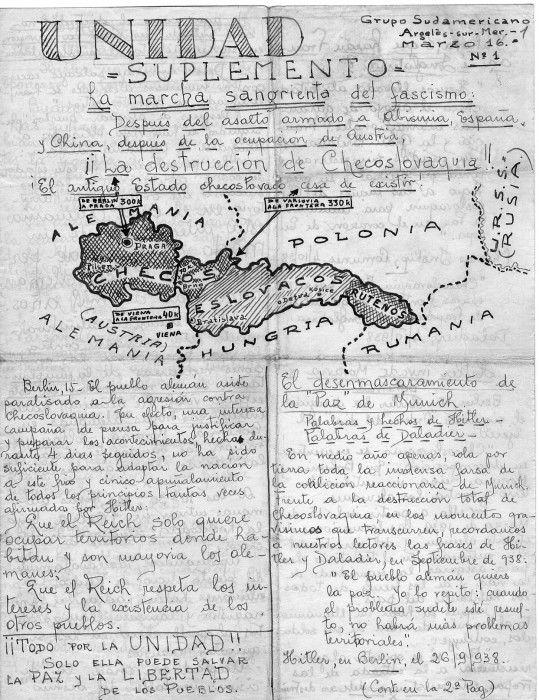 UNIDAD
Grupo Sudamericano
Argelès-sur-Mer.-
Marzo 16.-
Nº 1
=SUPLEMENTO=
La marcha sangrienta del fascismo:
Después del asalto armado a Abisinia, España,
y China, después de la ocupación de Austria,
¡¡La destrucción de Checoslovaquia!!
"El antiguo Estado checoslovaco cesa de existir"
DE BERLIN
A PRAGA 300K
DE VARSOVIA
A LA FRONTERA 330K
U.R.S.S.
(RUSIA)
ALEMANIA
POLONIA
PRAGA
Pilsen
CHECOS
Brno
ESLOVACOS
Detva
Kosice
RUTENOS
Bratislava
DE VIENA
A LA FRONTERA 40K
VIENA
(AUSTRIA)
ALEMANIA
HUNGRIA
RUMANIA
Berlin, 15- El pueblo alemán asiste
paralisado a la agresión contra
Checoslovaquia. En efecto, una intensa
campaña de prensa para justificar
y preparar los acontecimientos, hecha du-
rante 4 días seguidos, no ha sido
suficiente para adaptar la nación
a este frío y cínico apuñalamiento
de todos los principios tantas veces
afirmados por Hitler:
Que el Reich solo quiere
ocupar territorios donde ha-
bitan y son mayoría los ale-
manes;
Que el Reich respeta los in-
tereses y la existencia de los
otros pueblos.
¡¡TODO POR LA UNIDAD!!
SOLO ELLA PUEDE SALVAR
LA PAZ y LA LIBERTAD
DE LOS PUEBLOS.
El desenmascaramiento de
la "Paz" de Munich
Palabras y hechos de Hitler-
Palabras de Daladier-
En medio año apenas, rola por
tierra toda la inmensa farsa de
la coalición reaccionaria de Munich.
Frente a la destrucción total de
Checoslovaquia, en los momentos gra-
vísimos que transcurren, recordamos
a nuestros lectores las frases de Hi-
tler y Daladier, en Septiembre de 938.
"El pueblo alemán quiere
la paz. Yo lo repito: cuando
el problema sudete esté resuel-
to, no habrá más problemas
territoriales".
Hitler, en Berlin, el 26/9/938.
(Cont. en la 2ª Pag.)